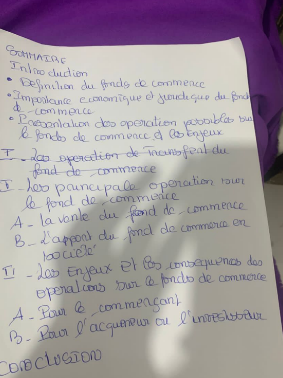 SOMMAIRE
Introduction
• Definition du fonds de commerce
• Importance economique et juridique du fond
de - commerce
• Presentation des operation possibles sur
le fonds de commerce et les Enjeux
I - Les operation de Transfert du
fond de commerce
I - Les principale operation sur
le fond de - commerce
A - la vente du fond de commerce
B - l'apport du fond de commerce en
société
II - Les Enjeux Et les consequences des
operations sur le fonds de commerce
A - Pour le commerçant
B - Pour l'acquereur ou l'investisseur
CONCLUSION